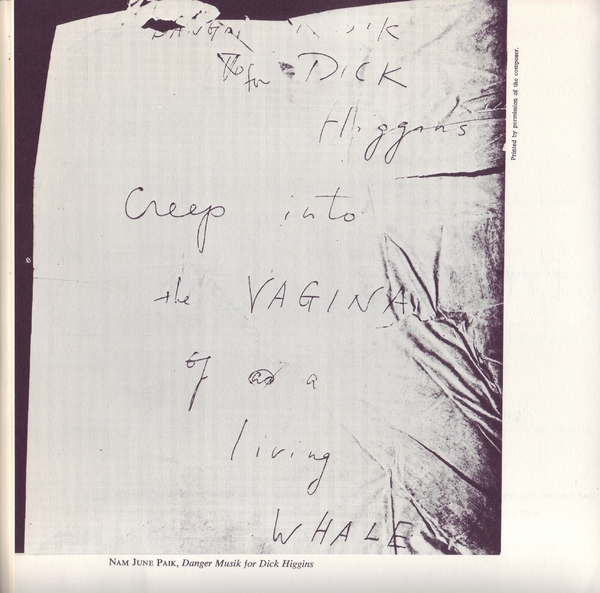 DANGER MUSIK
for DICK
Higgins
Creep into
the VAGINA
of a
living
WHALE
Printed by permission of the composer.
NAM JUNE PAIK, Danger Musik for Dick Higgins